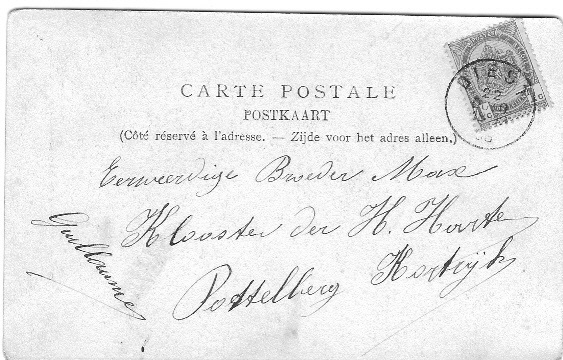 CARTE POSTALE
POSTKAART
(Côté réservé à l'adresse. — Zijde voor het adres alleen.)
DIEST
Eerweerdige Broeder Max
Klooster der H. Harten
Pottelberg Kortrijk
Guillaume